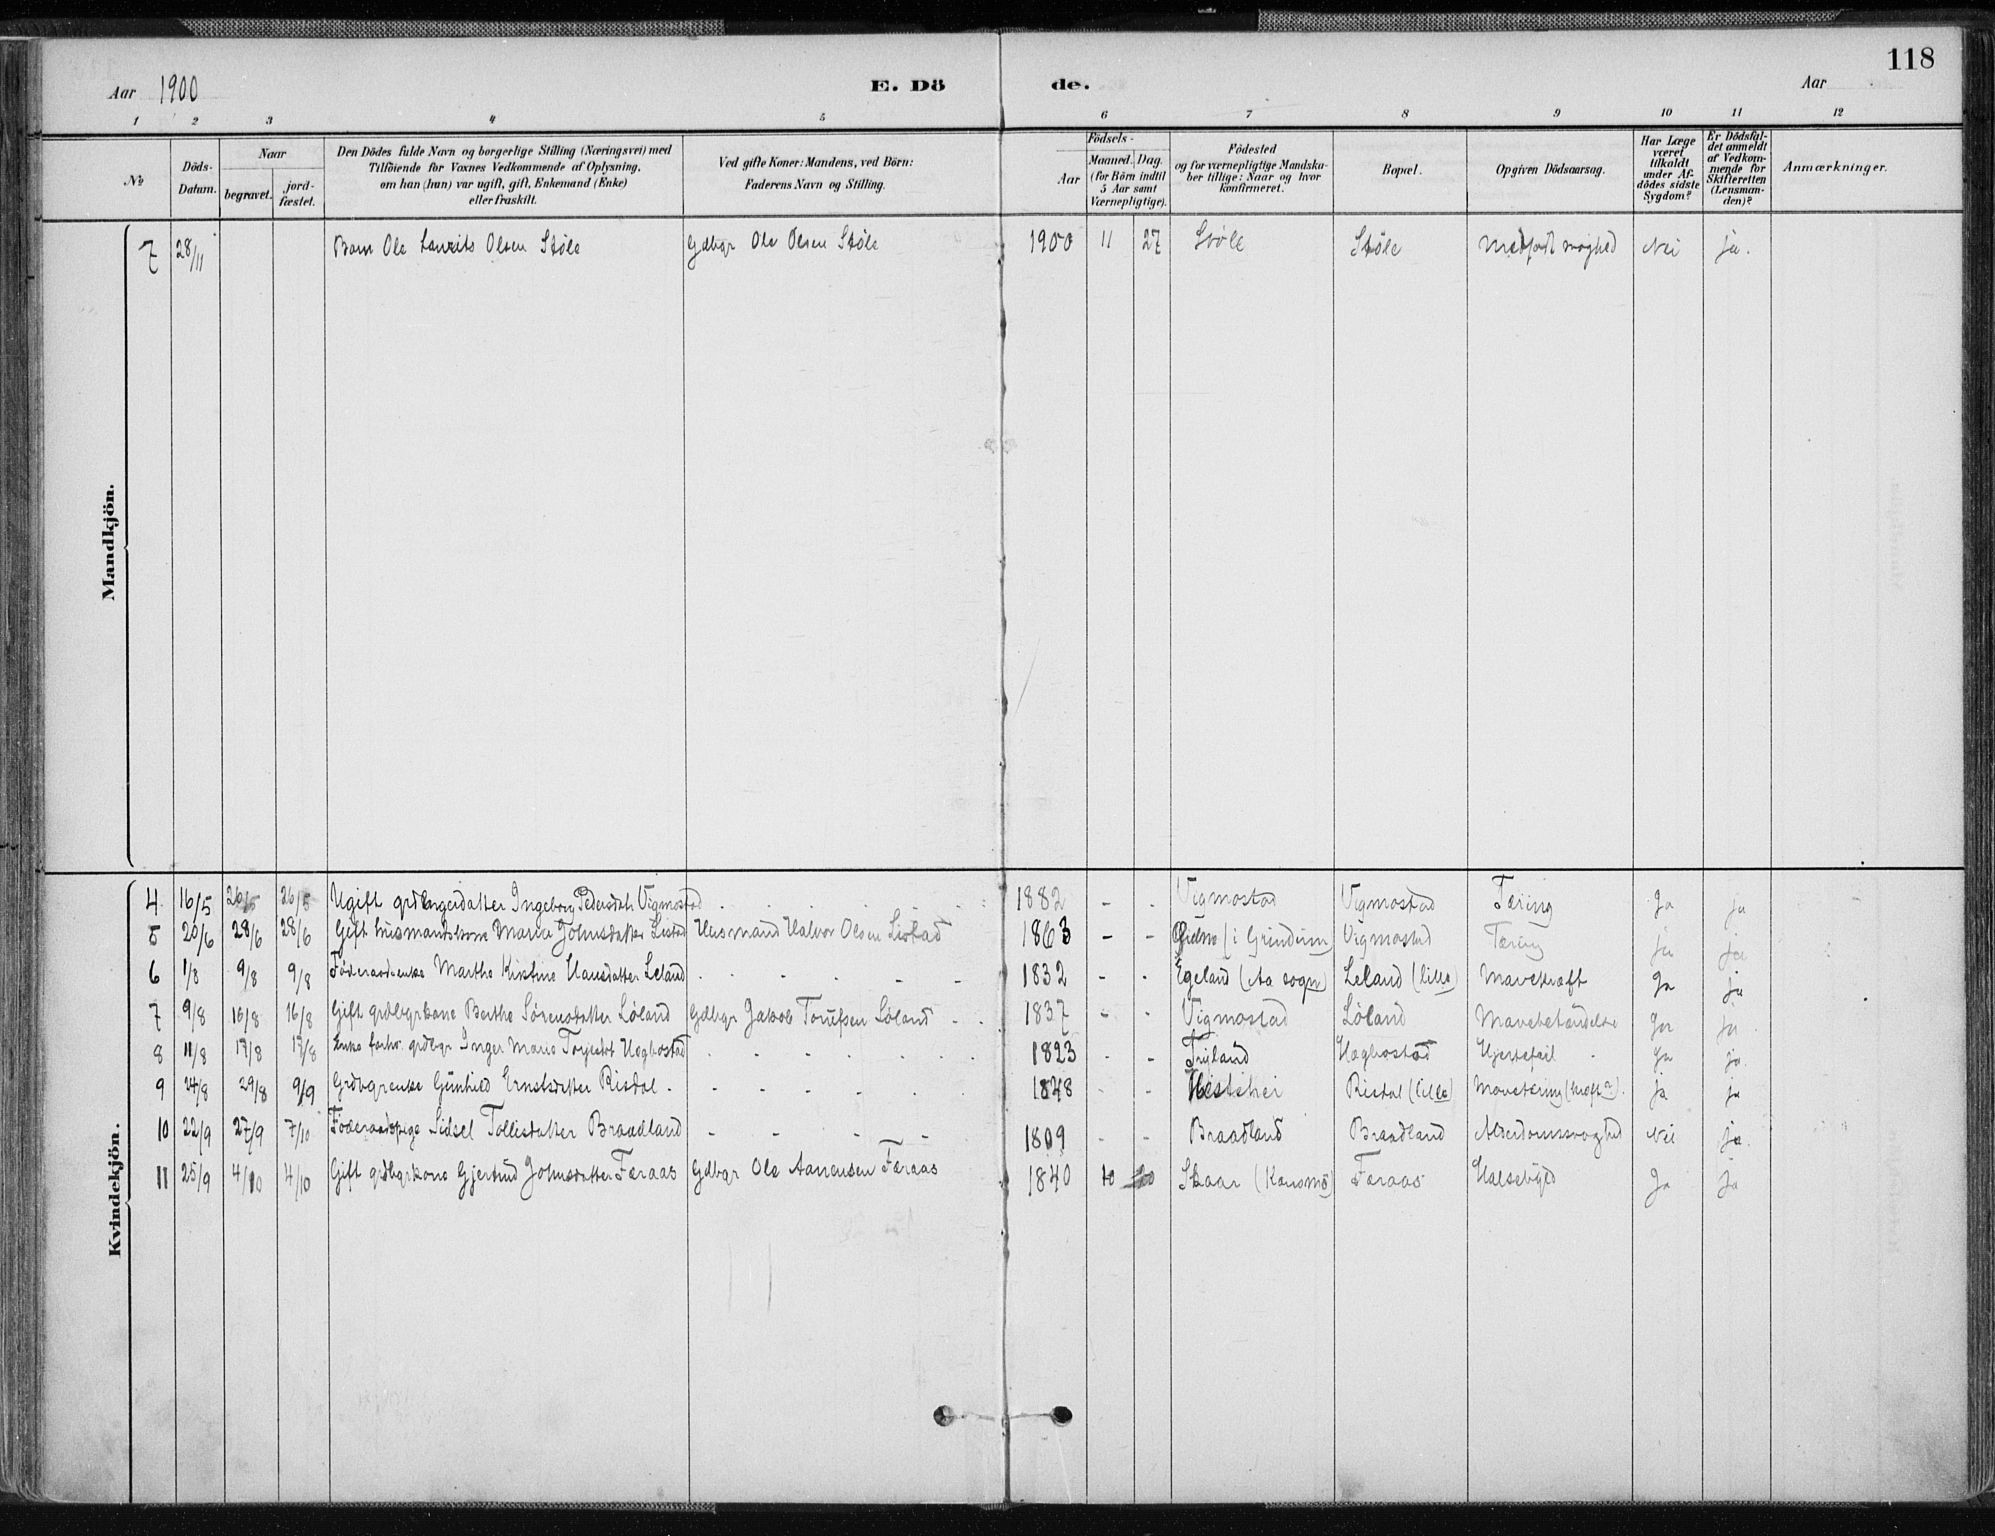 118
Aar 1900 E. Dö de. Aar
1 2 3 4 5 6 7 8 9 10 11 12
№
Döds-Datum.
Naar
begravet.
jord-fæstet.
Den Dödes fulde Navn og borgerlige Stilling (Næringsvei) med
Tilföiende for Voxnes Vedkommende af Oplysning,
om han (hun) var ugift, gift, Enkemand (Enke)
eller fraskilt.
Ved gifte Koner: Mandens, ved Börn:
Faderens Navn og Stilling.
Födsels-
Aar
Maaned. Dag.
(for Börn indtil
5 Aar samt
Værnepligtige).
Födested
og for værnepligtige Mandska-
ber tillige: Naar og hvor
konfirmeret.
Bopæl.
Opgiven Dödsaarsag.
Har Læge
været
tilkaldt
under Af-
dödes sidste
Sygdom?
Er Dödsfal-
det anmeldt
af Vedkom-
mende for
Skifteretten
(Lensman-
den)?
Anmærkninger.
Mandkjön.
7 28/11 Barn Ole Laurits Olsen Støle Gdbgr Ole Olsen Støle 1900 11 27 Støle Støle Medfødt svaghed Nei ja.
Kvindekjön.
4 16/5 26/5 26/5 Ugift grdbrugerdatter Ingeborg Pedersdatr Vigmostad 1882 - - Vigmostad Vigmostad Tæring Ja ja
5 20/6 28/6 28/6 Gift husmandskone Maria Johnsdatter Listad Husmand Halvor Olsen Listad 1863 - - (i Grindum) Vigmostad Tæring ja ja
6 1/8 9/8 9/8 Føderaadsenke Marthe Kirstine Hansdatter Leland - - - 1832 - - Egeland (Aa sogn) Leland (lille) Mavekræft Ja ja
7 9/8 16/8 16/8 Gift grdbgrkone Berthe Sørensdatter Løland Gdbgr Jakob Torufsen Løland - 1837 - - Vigmostad Løland Mavebetændelse Ja ja
8 11/8 17/8 17/8 Enke forhv. grdbgr Inger Marie Torjesdt Hægbostad 1823 - - Tryland Hægbostad Hjertefeil Ja ja
9 24/8 29/8 9/9 Grdbgrenke Gunhild Ernstsdatter Risdal - - - 1848 - - Hestehei Risdal (lille) Mavetæring (kræft?) ja ja
10 22/9 27/9 7/10 Føderaadspige Sidsel Tollisdatter Braadland - - - 1809 - - Braadland Braadland Alderdomssvaghed Nei ja
11 25/9 4/10 4/10 Gift grdbgrkone Gjertrud Johnsdatter Færaas Gdbgr Ole Aanensen Færaas 1840 10 20 Skaar (Konsmo) Færaas Halsebyld Ja ja